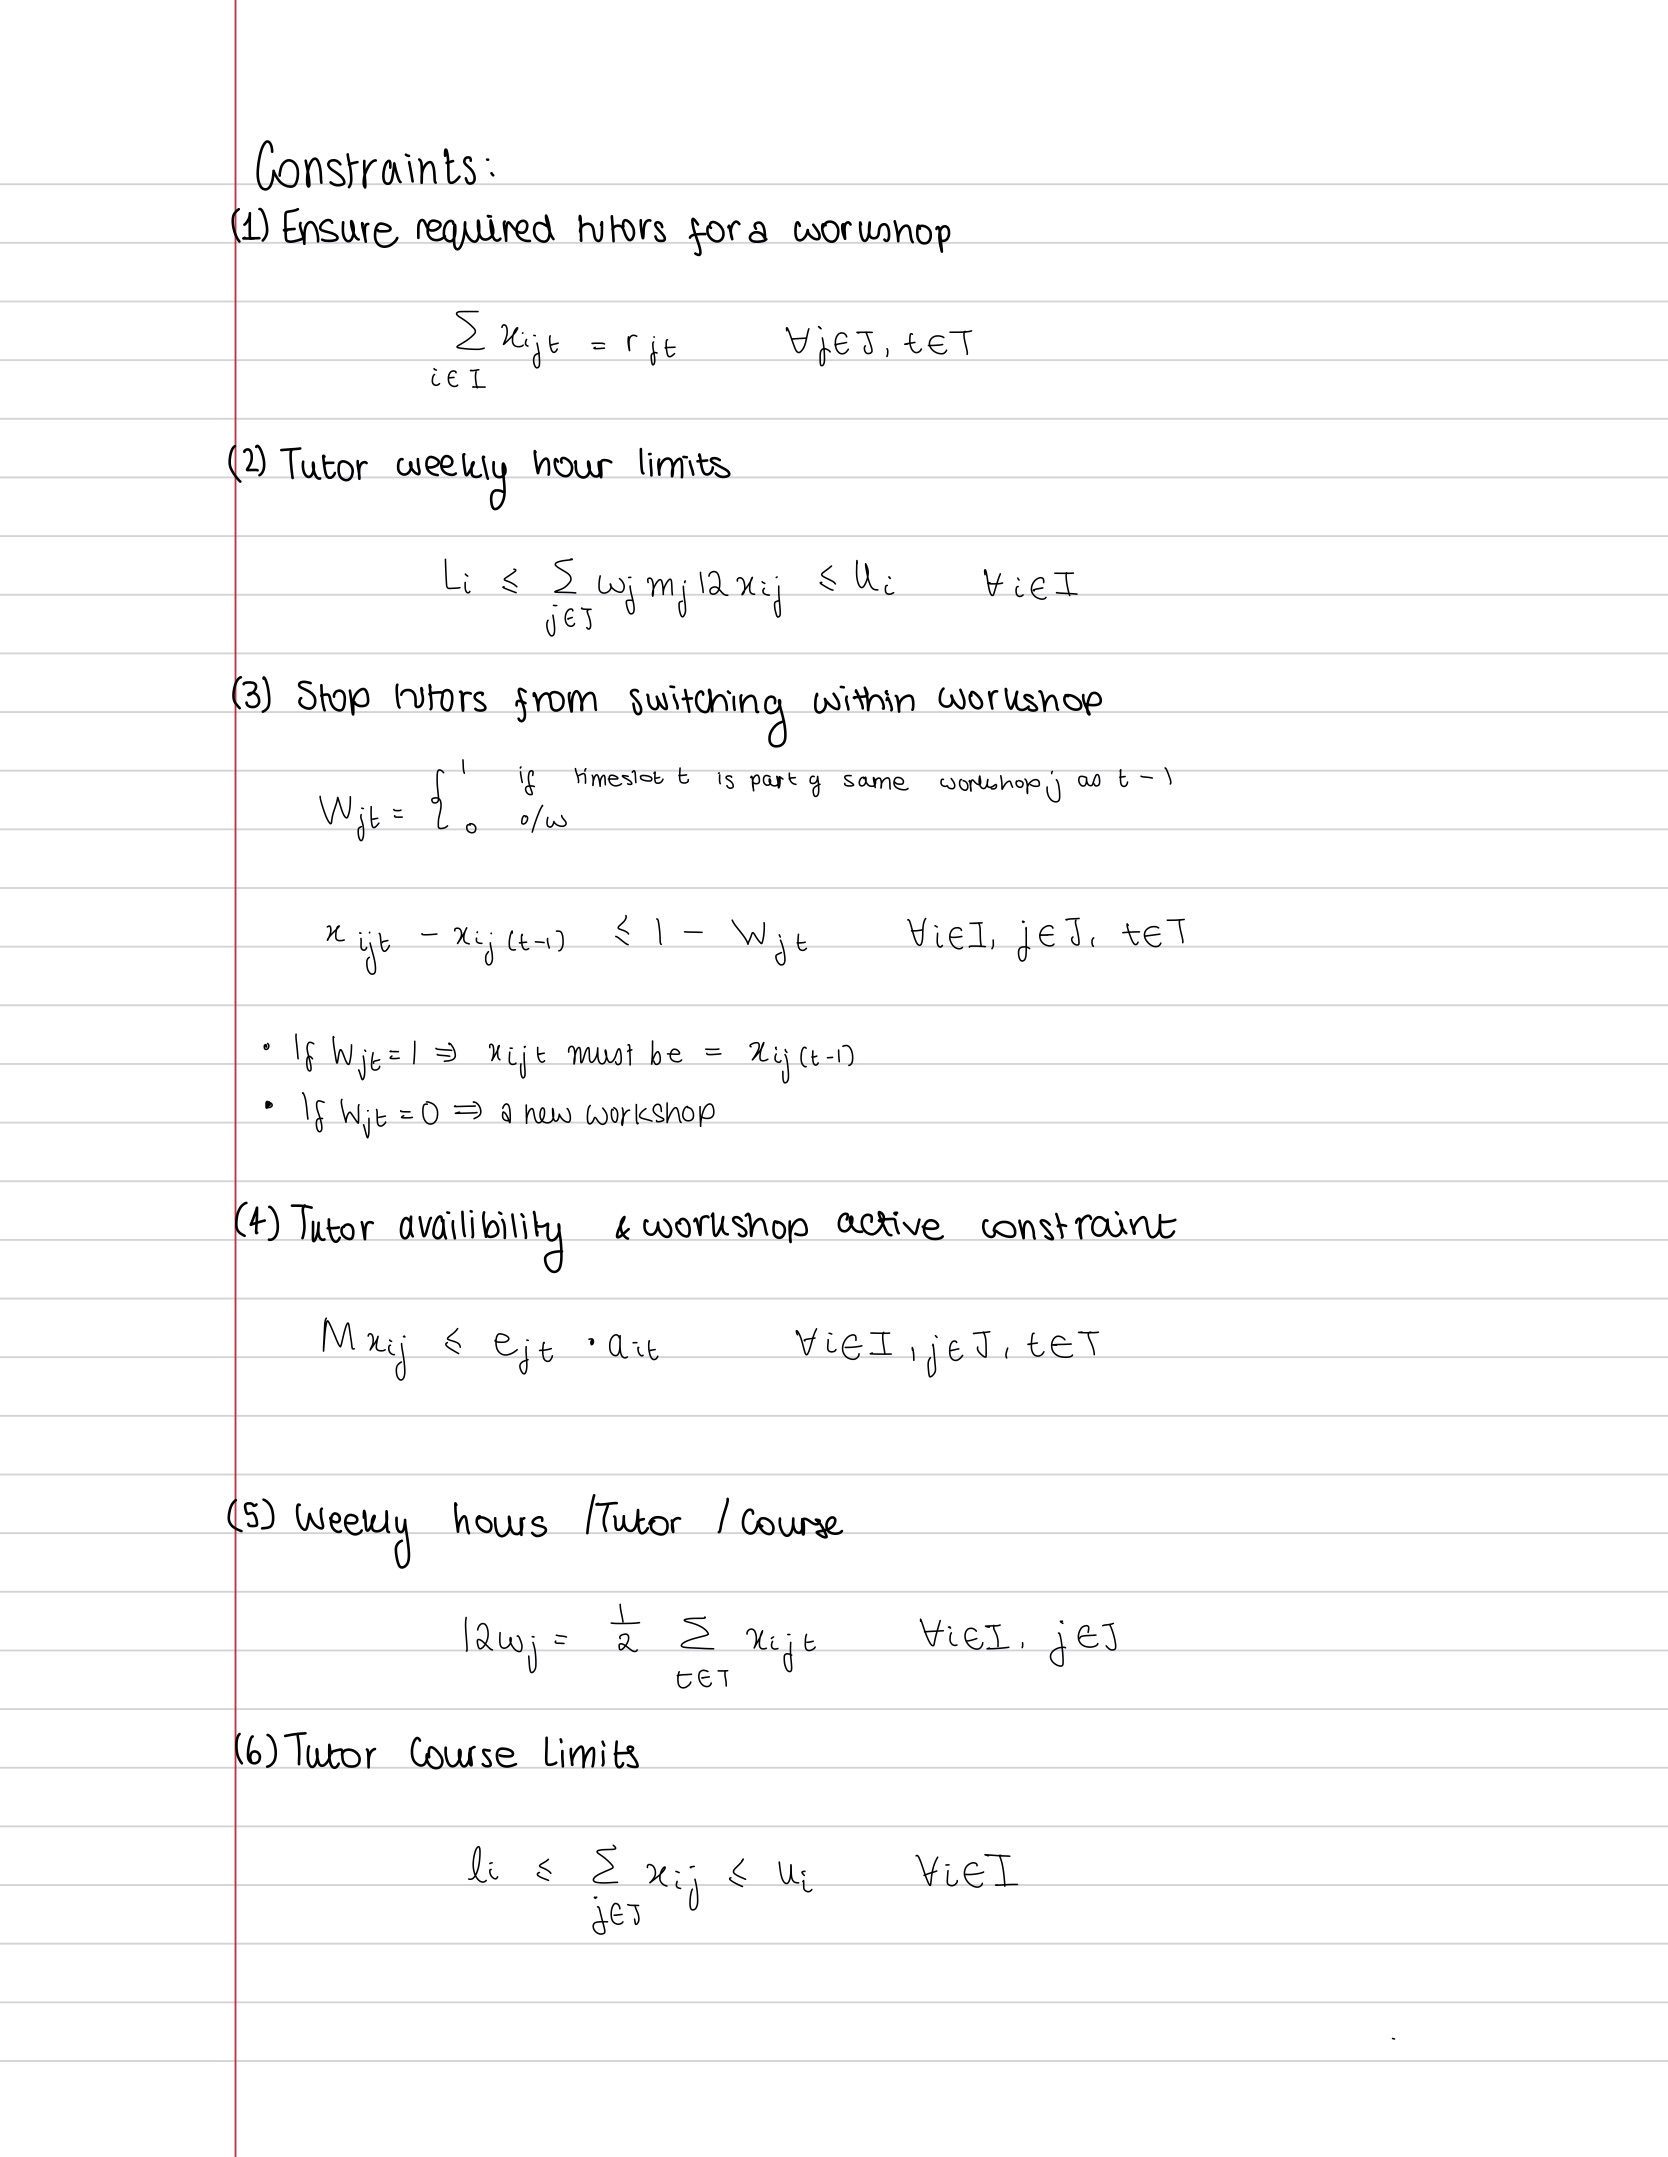 Constraints:
(1) Ensure required tutors for a workshop
∑ xijt = rjt ∀j∈J, t∈T
i∈I
(2) Tutor weekly hour limits
Li ≤ ∑ wj mj 12 xij ≤ Ui ∀i∈I
j∈J
(3) Stop tutors from switching within workshop
Wjt = { 1 if timeslot t is part of same workshop j as t-1
0 o/w
xijt - xij(t-1) ≤ 1 - Wjt ∀i∈I, j∈J, t∈T
• If Wjt = 1 ⇒ xijt must be = xij(t-1)
• If Wjt = 0 ⇒ a new workshop
(4) Tutor availibility & workshop active constraint
M xij ≤ ejt • ait ∀i∈I, j∈J, t∈T
(5) Weekly hours /Tutor / Course
12wj = 1/2 ∑ xijt ∀i∈I, j∈J
t∈T
(6) Tutor Course Limits
li ≤ ∑ xij ≤ ui ∀i∈I
j∈J